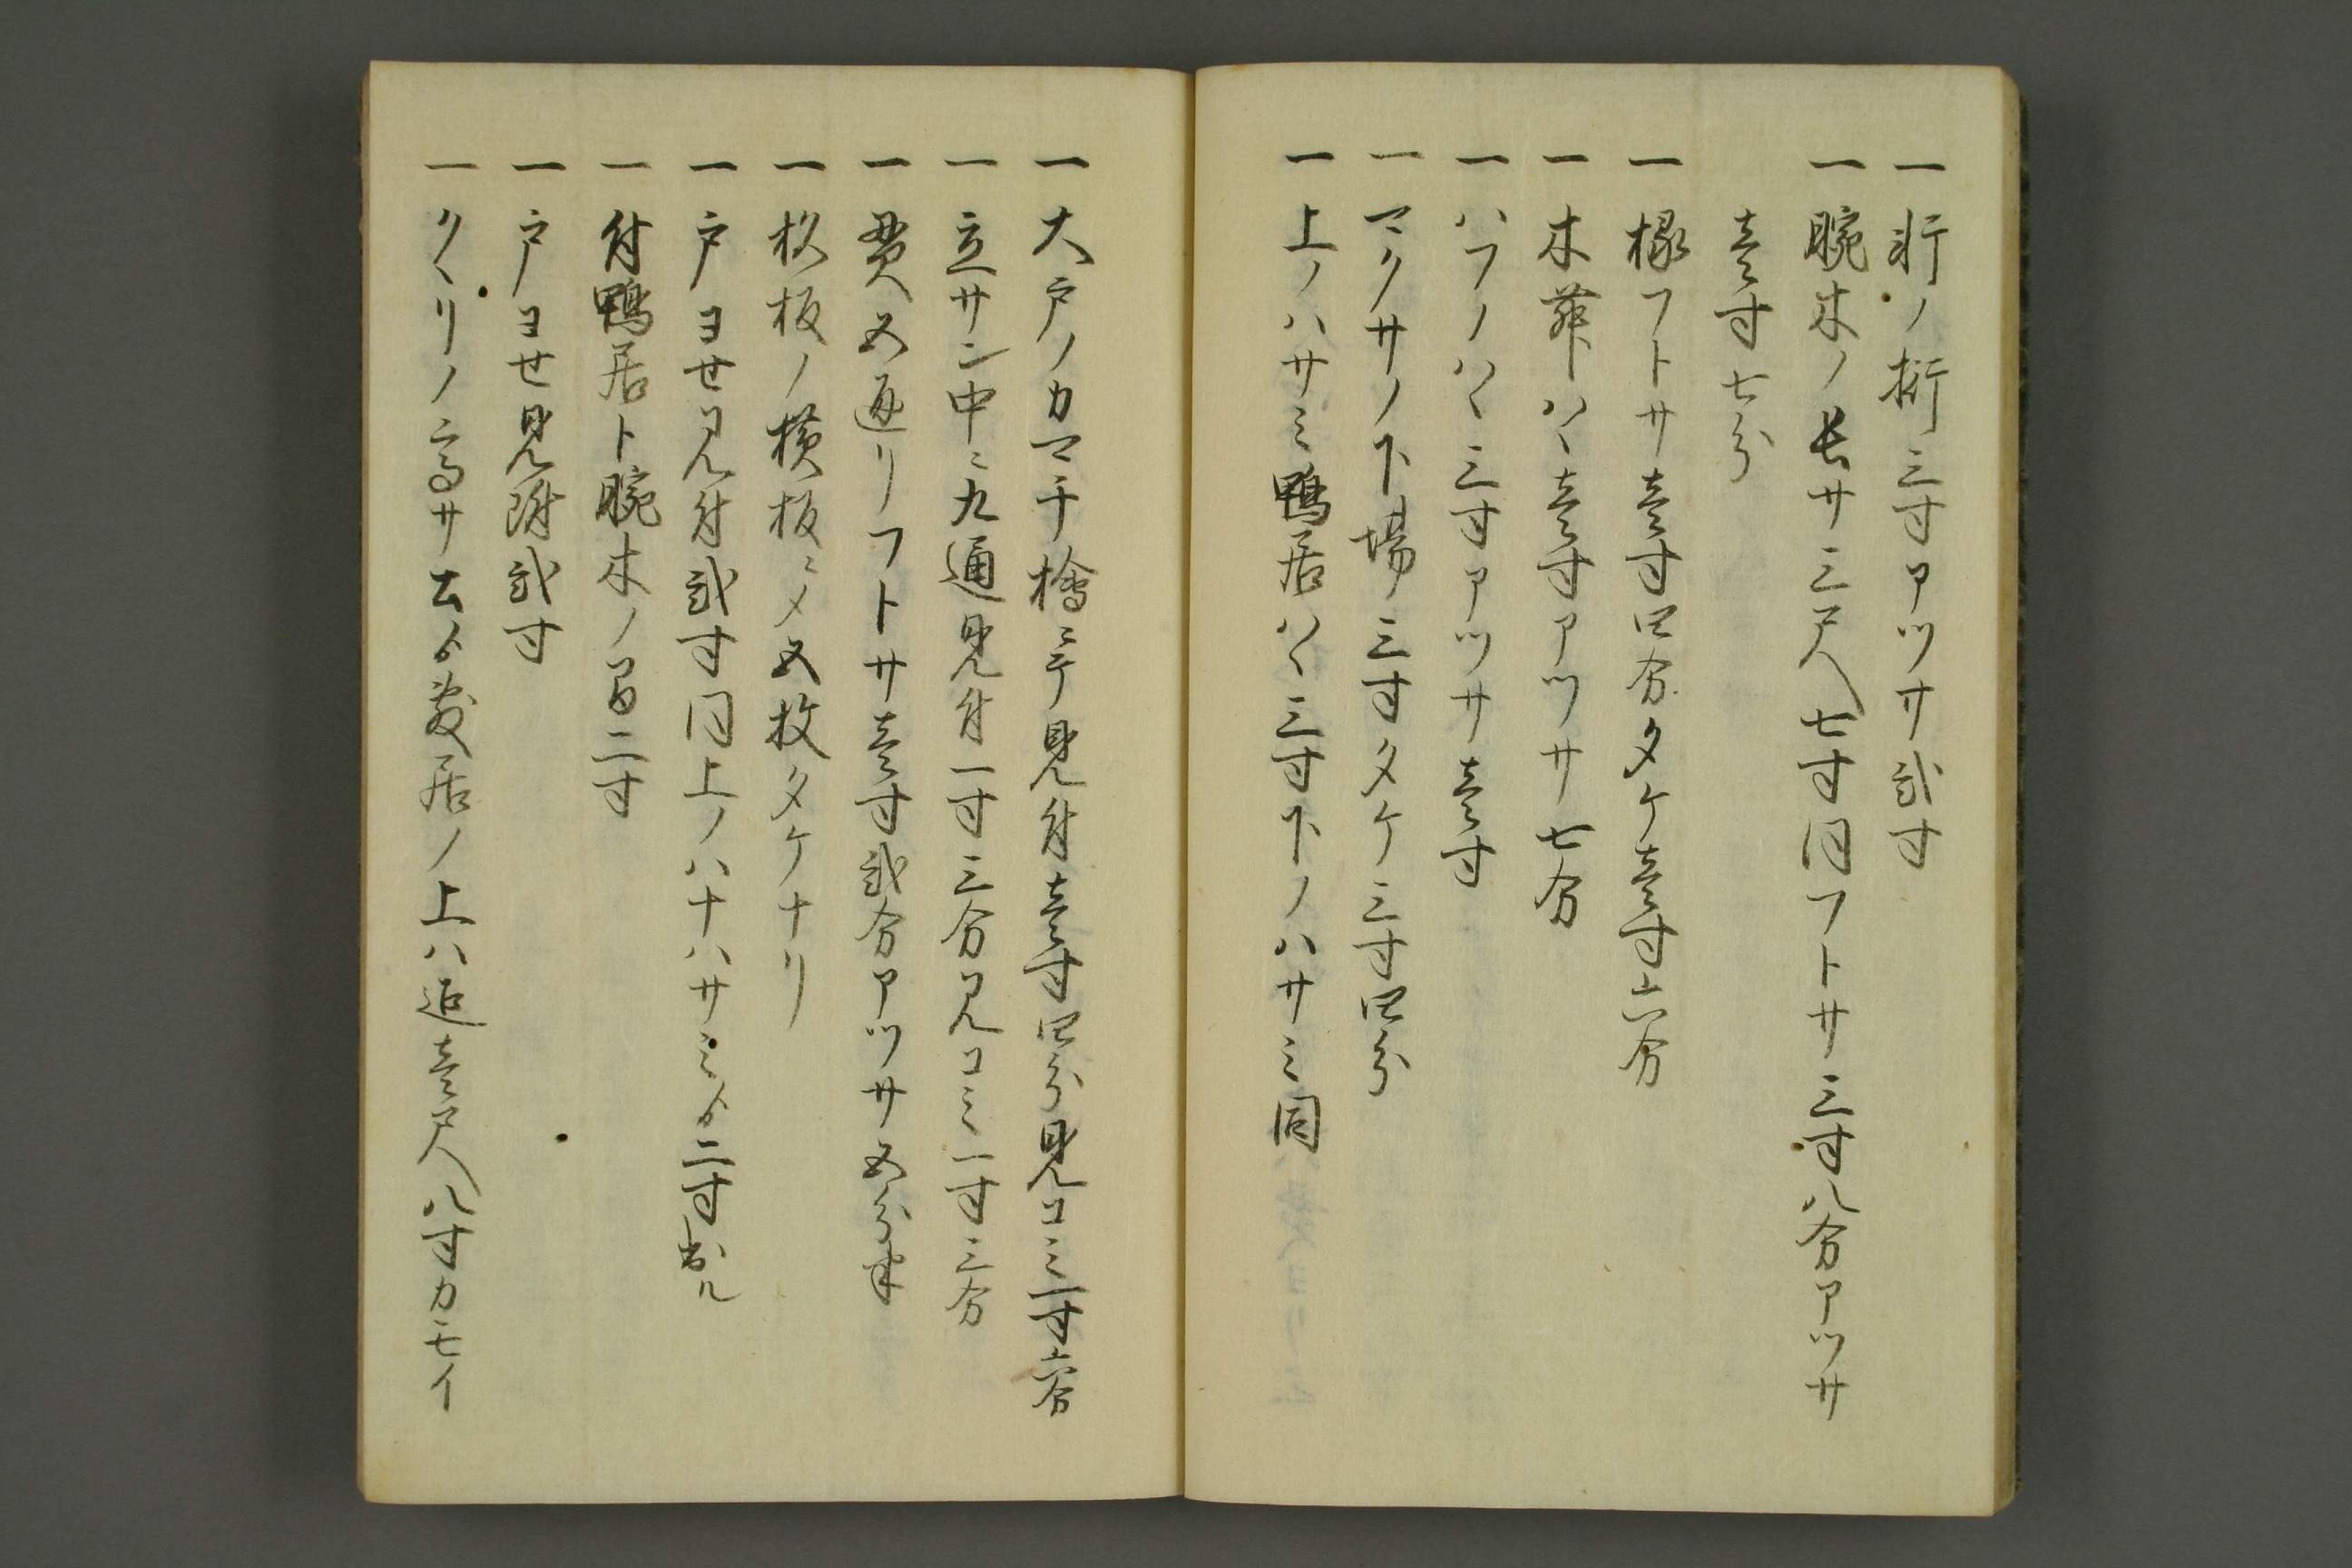 一 桁ノ桁三寸アツサ弐寸
一 腕木ノ長サ三尺七寸同フトサ三寸八分アツサ
壱寸七分
一 椽フトサ壱寸四分タケ壱寸六分
一 木舞ハヽ壱寸アツサ七分
一 ハフノハヽ三寸アツサ壱寸
一 マクサノ下場三寸タケ三寸四分
一 上ノハサミ鴨居ハヽ三寸下ノハサミ同
一 大戸ノカマチ檜ニテ見付壱寸四分見コミ一寸六分
一 立サン中ニ九通見付一寸三分見コミ一寸三分
一 貫五通リフトサ壱寸弐分アツサ五分半
一 杉板ノ横板ニメ五枚タケナリ
一 戸ヨセ見付弐寸同上ノハナハサミゟ二寸出ル
一 付鴨居ト腕木ノ間二寸
一 戸ヨセ見附弐寸
一 クヽリノ高サ土ゟ敷居ノ上ハ迄壱尺八寸カモイ